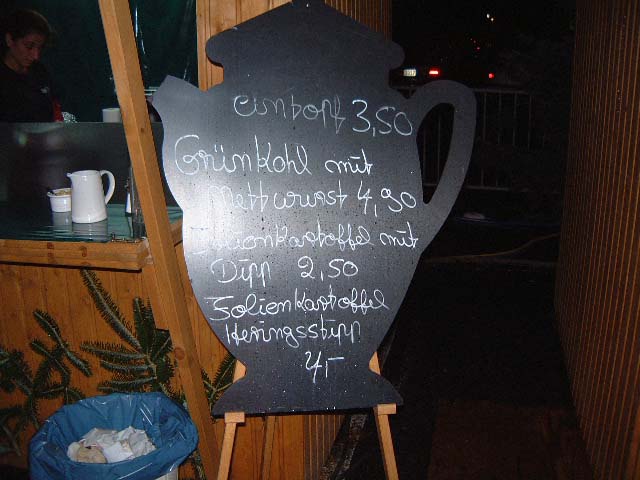 Eintopf 3,50
Grünkohl mit
Mettwurst 4,90
Folienkartoffel mit
Dipp 2,50
Folienkartoffel
Heringsstipp
4,-